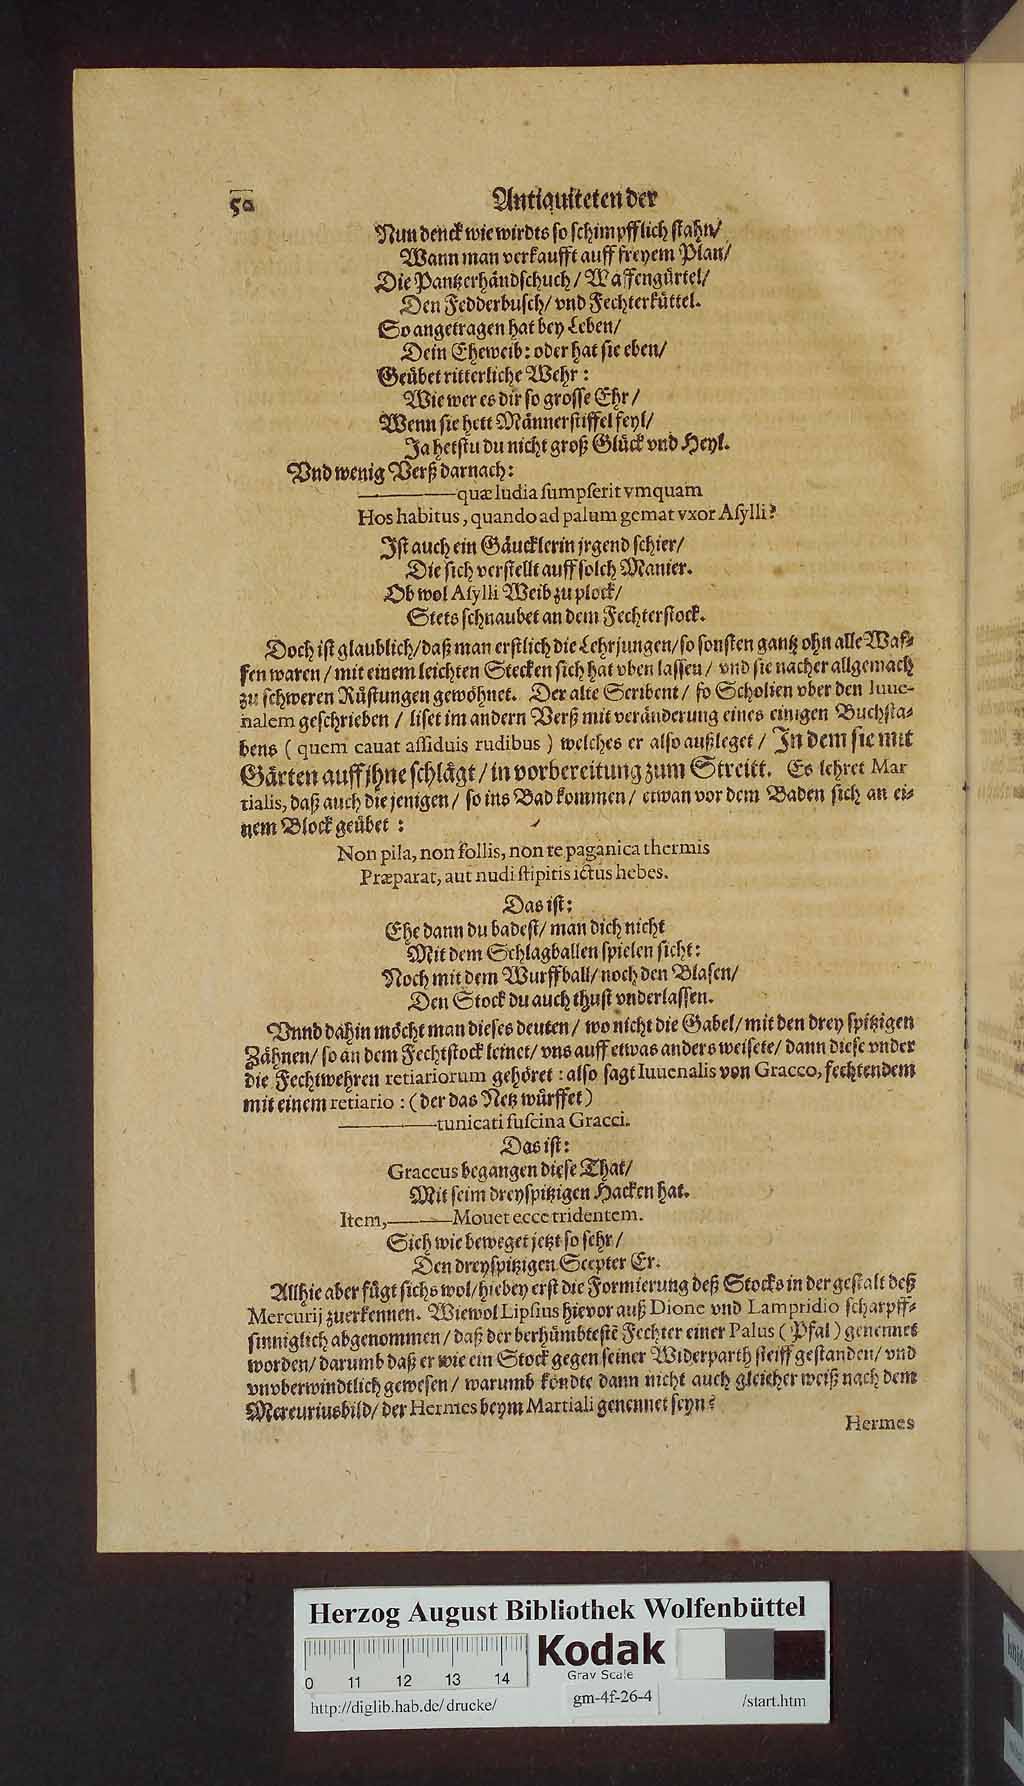 50
Antiquiteten der
Nun denck wie wirdts so schimpfflich stahn/
Wann man verkaufft auff freyem Plan/
Die Pantzerhändschuch/ Waffengürtel/
Den Fedderbusch/ vnd Fechterküttel.
So angetragen hat bey Leben/
Dein Eheweib: oder hat sie eben/
Geübet ritterliche Wehr:
Wie wer es dir so grosse Ehr/
Wenn sie hett Männerstiffel feyl/
Ja hetstu du nicht groß Glück vnd Heyl.
Vnd wenig Verß darnach:
———quæ ludia sumpserit vmquam
Hos habitus, quando ad palum gemat vxor Asylli?
Ist auch ein Gäucklerin jrgend schier/
Die sich verstellt auff solch Manier.
Ob wol Asylli Weib zu plock/
Stets schnaubet an dem Fechterstock.
Doch ist glaublich/ daß man erstlich die Lehrjungen/ so sonsten gantz ohn alle Waf-
fen waren/ mit einem leichten Stecken sich hat vben lassen/ vnd sie nacher allgemach
zu schweren Rüstungen gewöhnet. Der alte Scribent/ so Scholien vber den Iuue-
nalem geschrieben/ liset im andern Verß mit veränderung eines einigen Buchsta-
bens (quem cauat assiduis rudibus) welches er also außleget/ In dem sie mit
Gärten auff jhne schlägt/ in vorbereitung zum Streitt. Es lehret Mar
tialis, daß auch die jenigen/ so ins Bad kommen/ etwan vor dem Baden sich an ei-
nem Block geübet:
Non pila, non follis, non te paganica thermis
Præparat, aut nudi stipitis ictus hebes.
Das ist:
Ehe dann du badest/ man dich nicht
Mit dem Schlagballen spielen sicht:
Noch mit dem Wurffball/ noch den Blasen/
Den Stock du auch thust vnderlassen.
Vnnd dahin möcht man dieses deuten/ wo nicht die Gabel/ mit den drey spitzigen
Zähnen/ so an dem Fechtstock leinet/ vns auff etwas anders weisete/ dann diese vnder
die Fechtwehren retiariorum gehöret: also sagt Iuuenalis von Gracco, fechtendem
mit einem retiario: (der das Netz würffet)
———tunicati fuscina Gracci.
Das ist:
Graccus begangen diese That/
Mit seim dreyspitzigen Hacken hat.
Item,———Mouet ecce tridentem.
Sich wie beweget jetzt so sehr/
Den dreyspitzigen Scepter Er.
Allhie aber fügt sichs wol/ hiebey erst die Formierung deß Stocks in der gestalt deß
Mercurij zuerkennen. Wiewol Lipsius hievor auß Dione vnd Lampridio scharpff-
sinniglich abgenommen/ daß der berhümbtestē Fechter einer Palus (Pfal) genennet
worden/ darumb daß er wie ein Stock gegen seiner Widerparth steiff gestanden/ vnd
vnvberwindtlich gewesen/ warumb köndte dann nicht auch gleicher weiß nach dem
Mercuriusbild/ der Hermes beym Martiali genennet seyn?
Hermes
Herzog August Bibliothek Wolfenbüttel
Kodak
Gray Scale
0 11 12 13 14
http://diglib.hab.de/drucke/
gm-4f-26-4
/start.htm